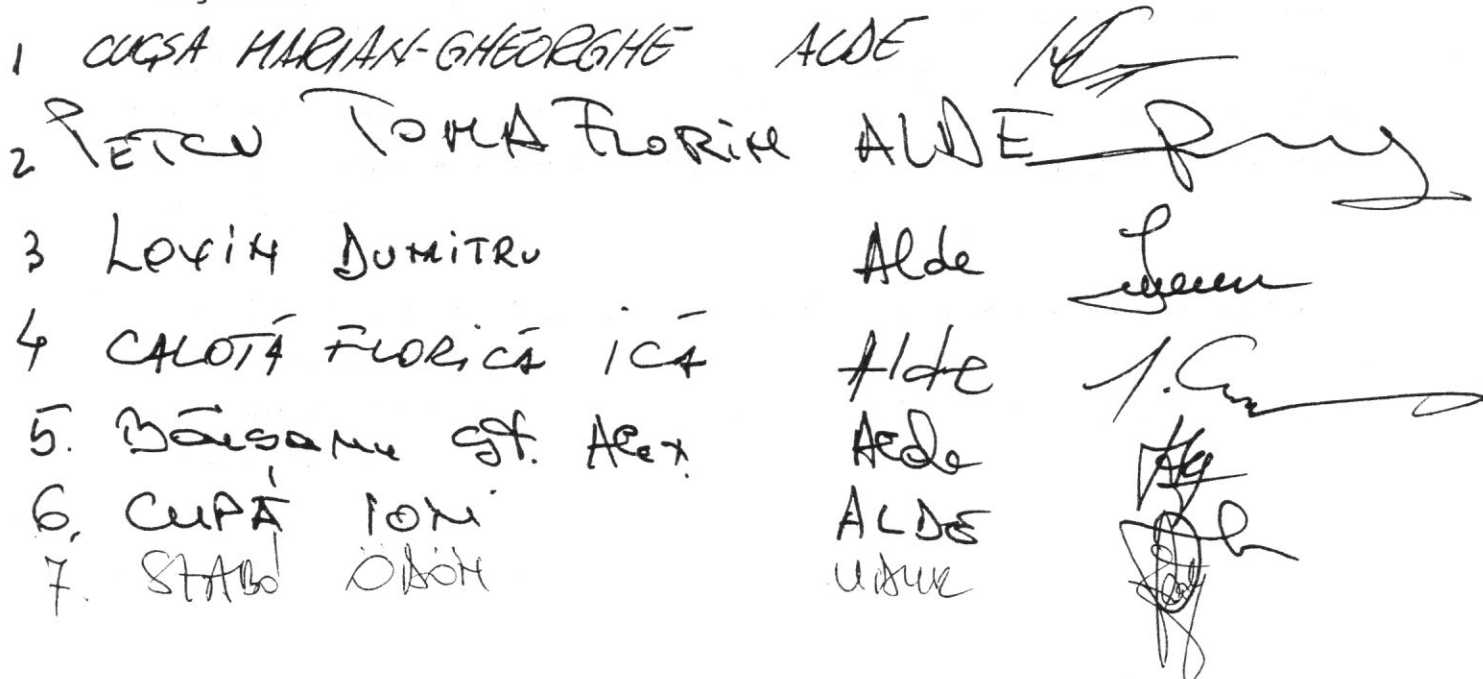 1 CUCȘA MARIAN-GHEORGHE ALDE
2 PETCU TOMA FLORIN ALDE
3 Lovin DUMITRU Alde
4 CALOTĂ FLORICĂ ICĂ Alde
5. Băişanu Șt. Alex. Alde
6. CUPĂ ION ALDE
7. SZABÓ ÖDÖN UDMR